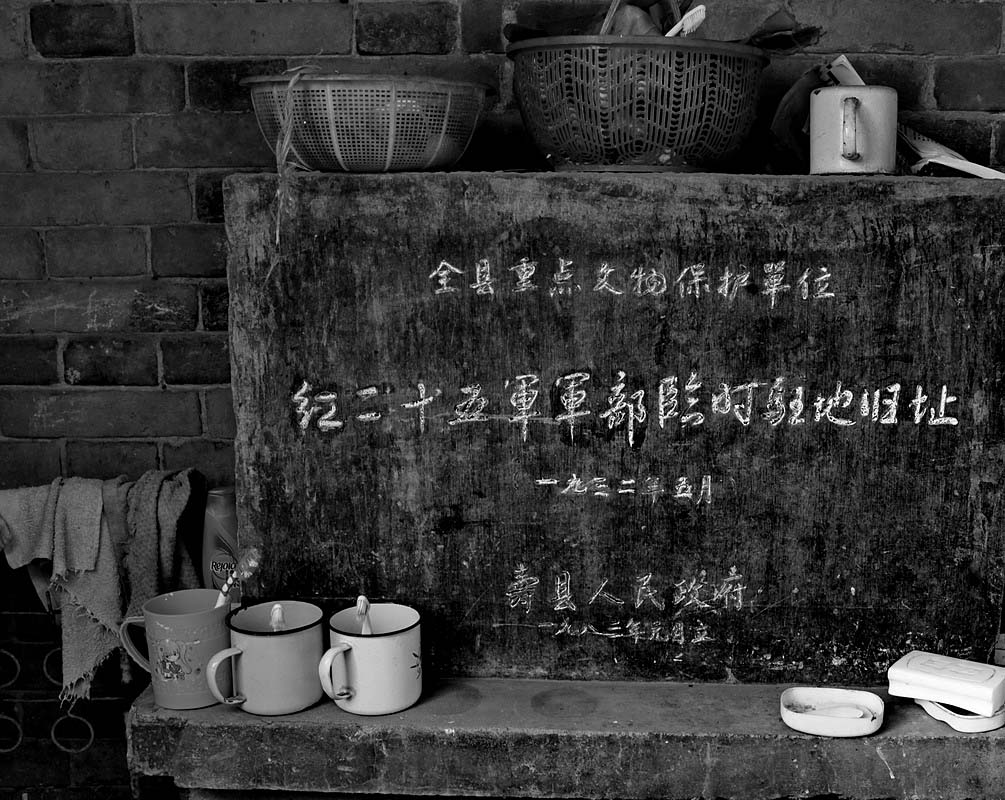 全县重点文物保护單位
红二十五軍軍部臨时駐地旧址
一九三二年五月
壽县人民政府
一九八二年元月立
Rejoice